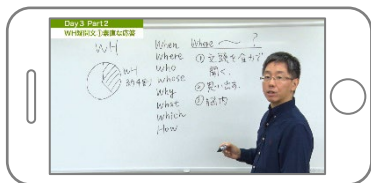 Day 3 Part 2
WH疑問文①素直な応答
WH
WH
3分4割
When
Where
Who
Whose
Why
What
Which
How
Where ～ ?
① 文頭を全力で
聞く.
② 思い出す.
③